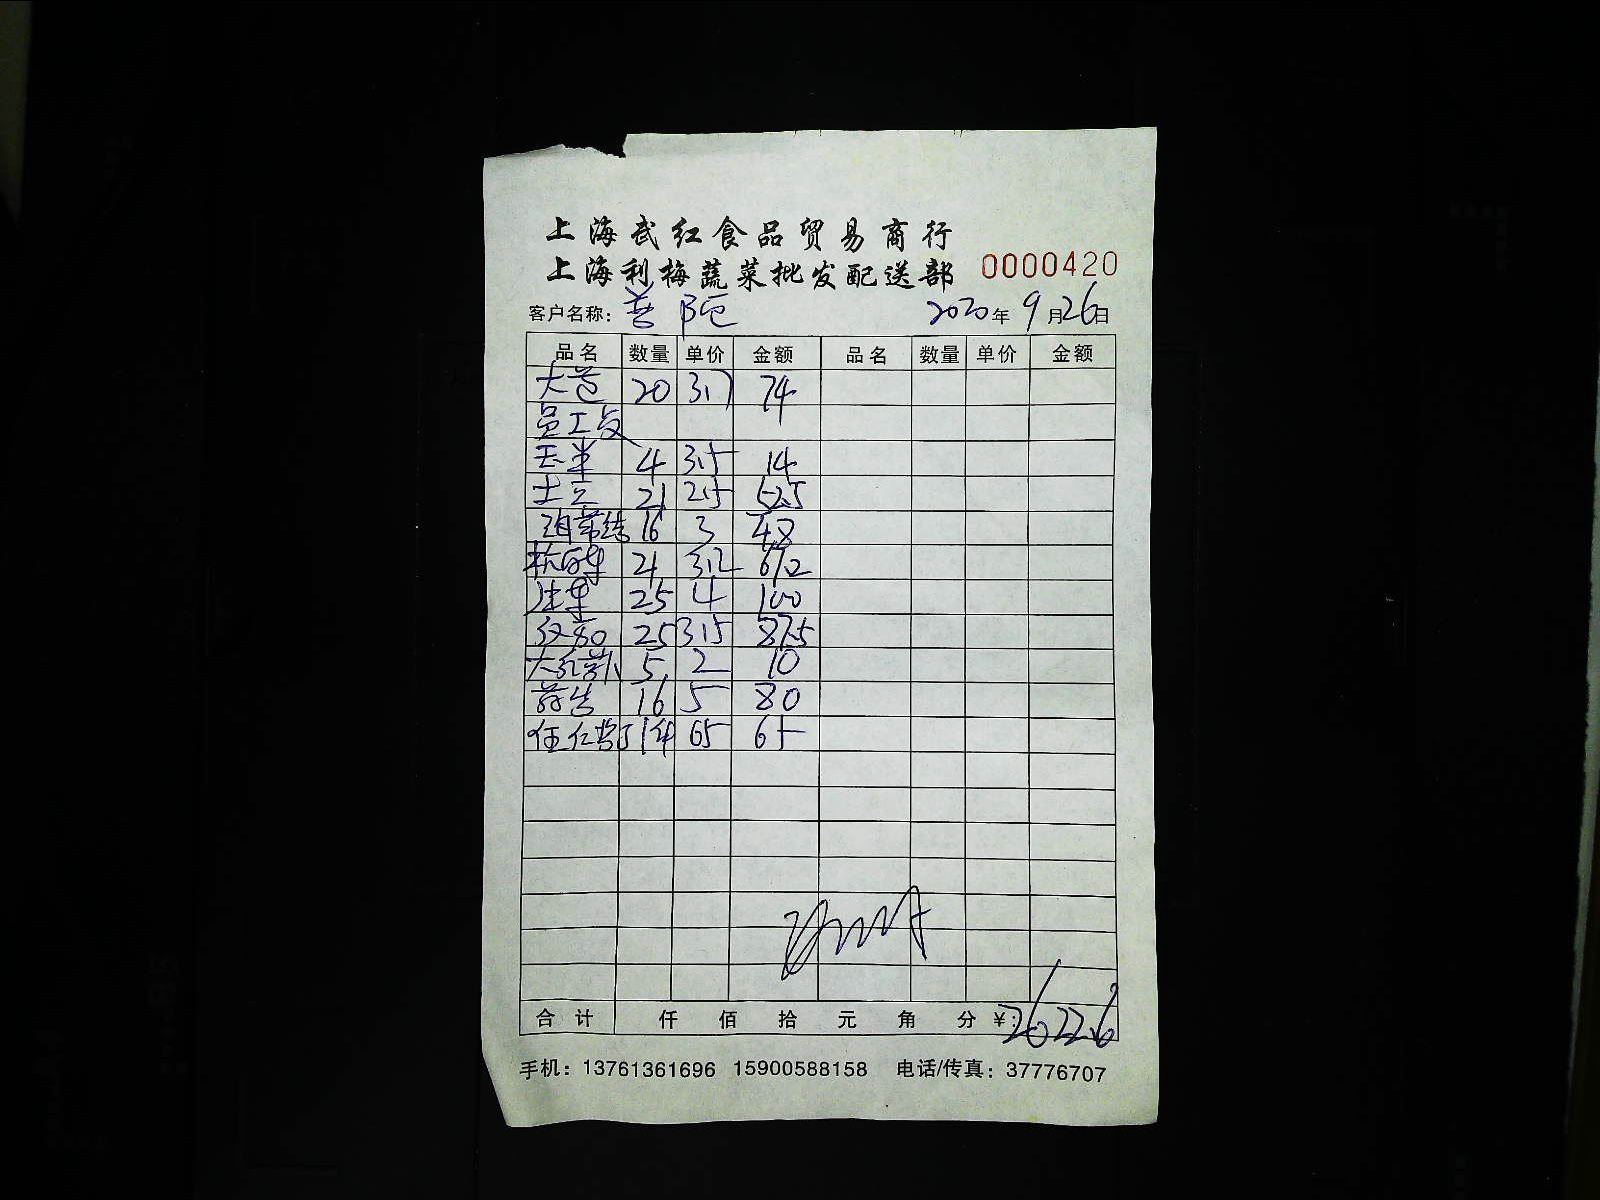 上海武红食品贸易商行
上海利梅蔬菜批发配送部 0000420
客户名称： 2020年9月26日
品名 数量 单价 金额 品名 数量 单价 金额
大葱 20 3.7 74
员工食
玉米 4 3.5 14
土豆 21 2.5 52.5
海带结 16 3 48
杭白菜 21 3.2 67.2
生菜 25 4 100
25 3.5 87.5
大红萝卜 5 2 10
莴苣 16 5 80
1件 65 65
合计 仟 佰 拾 元 角 分 ¥：2622.6
手机：13761361696 15900588158 电话/传真：37776707